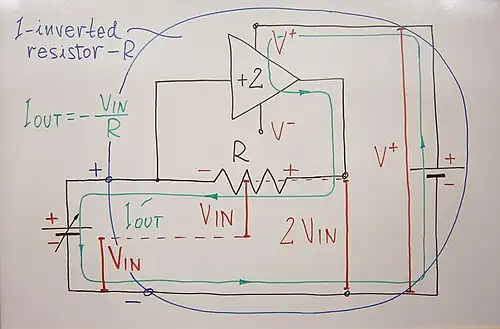 I-inverted
resistor -R
V⁺
+2
I OUT = - VIN
R
V⁻
R
V⁺
+
-
+
+
-
+
-
IOUT
VIN
2VIN
VIN
-